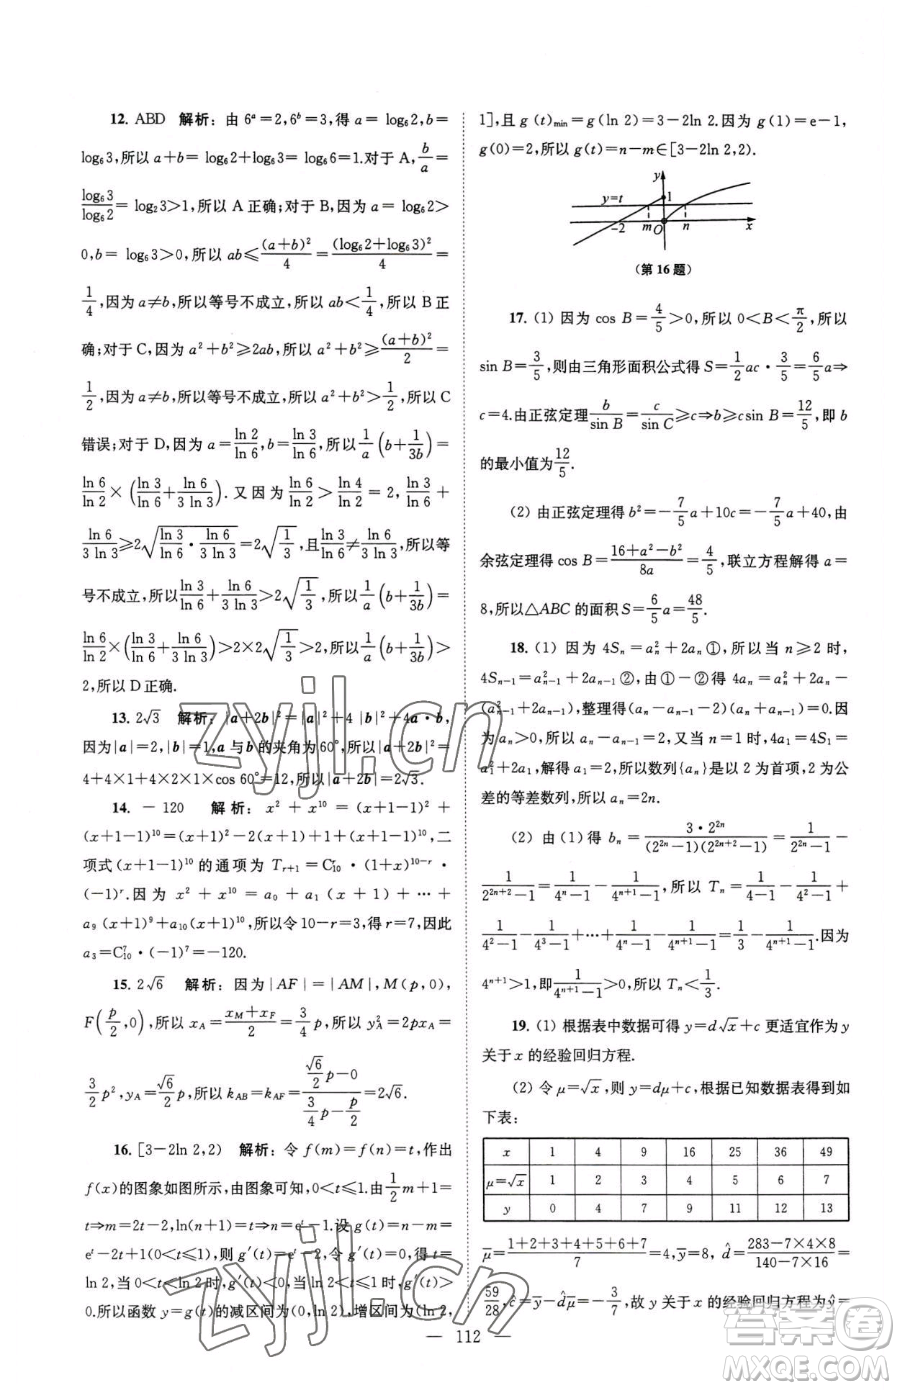 12. ABD 解析：由 6^a=2,6^b=3,得 a=log₆2,b=
log₆3,所以 a+b=log₆2+log₆3=log₆6=1.对于 A,b/a=
log₆3/log₆2=log₂3>1,所以 A 正确;对于 B,因为 a=log₆2>
0,b=log₆3>0,所以 ab≤(a+b)²/4=(log₆2+log₆3)²/4=
1/4,因为 a≠b,所以等号不成立,所以 ab<1/4,所以 B 正
确;对于 C,因为 a²+b²≥2ab,所以 a²+b²≥(a+b)²/2=
1/2,因为 a≠b,所以等号不成立,所以 a²+b²>1/2,所以 C
错误;对于 D,因为 a=ln 2/ln 6,b=ln 3/ln 6,所以1/a(b+1/3b)=
ln 6/ln 2×(ln 3/ln 6+ln 6/3ln 3).又因为ln 6/ln 2>ln 4/ln 2=2,ln 3/ln 6+
ln 6/3ln 3≥2√(ln 3/ln 6·ln 6/3ln 3)=2√(1/3),且ln 3/ln 6≠ln 6/3ln 3,所以等
号不成立,所以ln 3/ln 6+ln 6/3ln 3>2√(1/3),所以1/a(b+1/3b)=
ln 6/ln 2×(ln 3/ln 6+ln 6/3ln 3)>2×2√(1/3)>2,所以1/a(b+1/3b)>
2,所以 D 正确.
13. 2√3 解析：|a+2b|²=|a|²+4|b|²+4a·b,
因为|a|=2,|b|=1,a 与 b 的夹角为 60°,所以|a+2b|²=
4+4+4×2×1×cos 60°=12,所以|a+2b|=2√3.
14. －120 解析：x²+x¹⁰=(x+1-1)²+
(x+1-1)¹⁰=(x+1)²-2(x+1)+1+(x+1-1)¹⁰,二
项式(x+1-1)¹⁰的通项为 T_{r+1}=C₁₀^r·(x+1)^{10-r}·
(-1)^r.因为 x²+x¹⁰=a₀+a₁(x+1)+…+
a₉(x+1)⁹+a₁₀(x+1)¹⁰,所以令 10-r=3,得 r=7,因此
a₃=C₁₀⁷·(-1)⁷=-120.
15. 2√6 解析：因为|AF|=|AM|,M(p,0),
F(p/2,0),所以 x_A=(x_M+x_F)/2=3/4p,所以 y_A²=2px_A=
3/2p²,y_A=√6/2p,所以 k_AB=k_AF=(√6/2p-0)/(3/4p-p/2)=2√6.
16. [3-2ln 2,2) 解析：令 f(m)=f(n)=t,作出
f(x)的图象如图所示,由图象可知,0<t≤1.由1/2m+1=
t⇒m=2t-2,ln(n+1)=t⇒n=e^t-1.设 g(t)=n-m=
e^t-2t+1(0<t≤1),则 g′(t)=e^t-2,令 g′(t)=0⇒t=
ln 2,当 0<t<ln 2时,g′(t)<0,当 ln 2<t≤1时,g′(t)>
0.所以函数 y=g(t)的减区间为(0,ln 2),增区间为(ln 2,
1],且 g(t)min=g(ln 2)=3-2ln 2.因为 g(1)=e-1,
g(0)=2,所以 g(t)=n-m∈[3-2ln 2,2).
y
y=t
1
-2 m O n x
(第 16 题)
17. (1) 因为 cos B=4/5>0,所以 0<B<π/2,所以
sin B=3/5,则由三角形面积公式得 S=1/2ac·3/5=6/5a⇒
c=4.由正弦定理b/sin B=c/sin C≥c⇒b≥csin B=12/5,即 b
的最小值为12/5.
(2) 由正弦定理得 b²=-7/5a+10c=-7/5a+40,由
余弦定理得 cos B=(16+a²-b²)/8a=4/5,联立方程解得 a=
8,所以△ABC 的面积 S=6/5a=48/5.
18. (1) 因为 4Sₙ=aₙ²+2aₙ①,所以当 n≥2 时,
4Sₙ₋₁=aₙ₋₁²+2aₙ₋₁②,由①-②得 4aₙ=aₙ²+2aₙ-
(aₙ₋₁²+2aₙ₋₁),整理得(aₙ-aₙ₋₁-2)(aₙ+aₙ₋₁)=0.因
为 aₙ>0,所以 aₙ-aₙ₋₁=2.又当 n=1 时,4a₁=4S₁=
a₁²+2a₁,所以 a₁=2,所以数列{aₙ}是以 2 为首项,2 为公
差的等差数列,所以 aₙ=2n.
(2) 由(1)得 bₙ=3·2²ⁿ/((2²ⁿ-1)(2²ⁿ⁺²-1))=1/(2²ⁿ-1)-
1/(2²ⁿ⁺²-1)=1/(4ⁿ-1)-1/(4ⁿ⁺¹-1),所以 Tₙ=1/(4-1)-1/(4²-1)+
1/(4²-1)-1/(4³-1)+…+1/(4ⁿ-1)-1/(4ⁿ⁺¹-1)=1/3-1/(4ⁿ⁺¹-1).因为
4ⁿ⁺¹>1,所以1/(4ⁿ⁺¹-1)>0,所以 Tₙ<1/3.
19. (1) 根据表中数据可得 y=d√x+c 更适宜作为 y
关于 x 的经验回归方程.
(2) 令 μ=√x,则 y=dμ+c,根据已知数据表得到
如下表：
x 1 4 9 16 25 36 49
μ=√x 1 2 3 4 5 6 7
y 0 4 7 9 11 12 13
μ̄=(1+2+3+4+5+6+7)/7=4,ȳ=8, d̂=(283-7×4×8)/(140-7×16)=
59/28,ĉ=ȳ-d̂μ̄=-3/7,故 y 关于 x 的经验回归方程为 ŷ=
— 112 —
zyjl.cn
zyjl.cn
答案圈
MXQE.COM